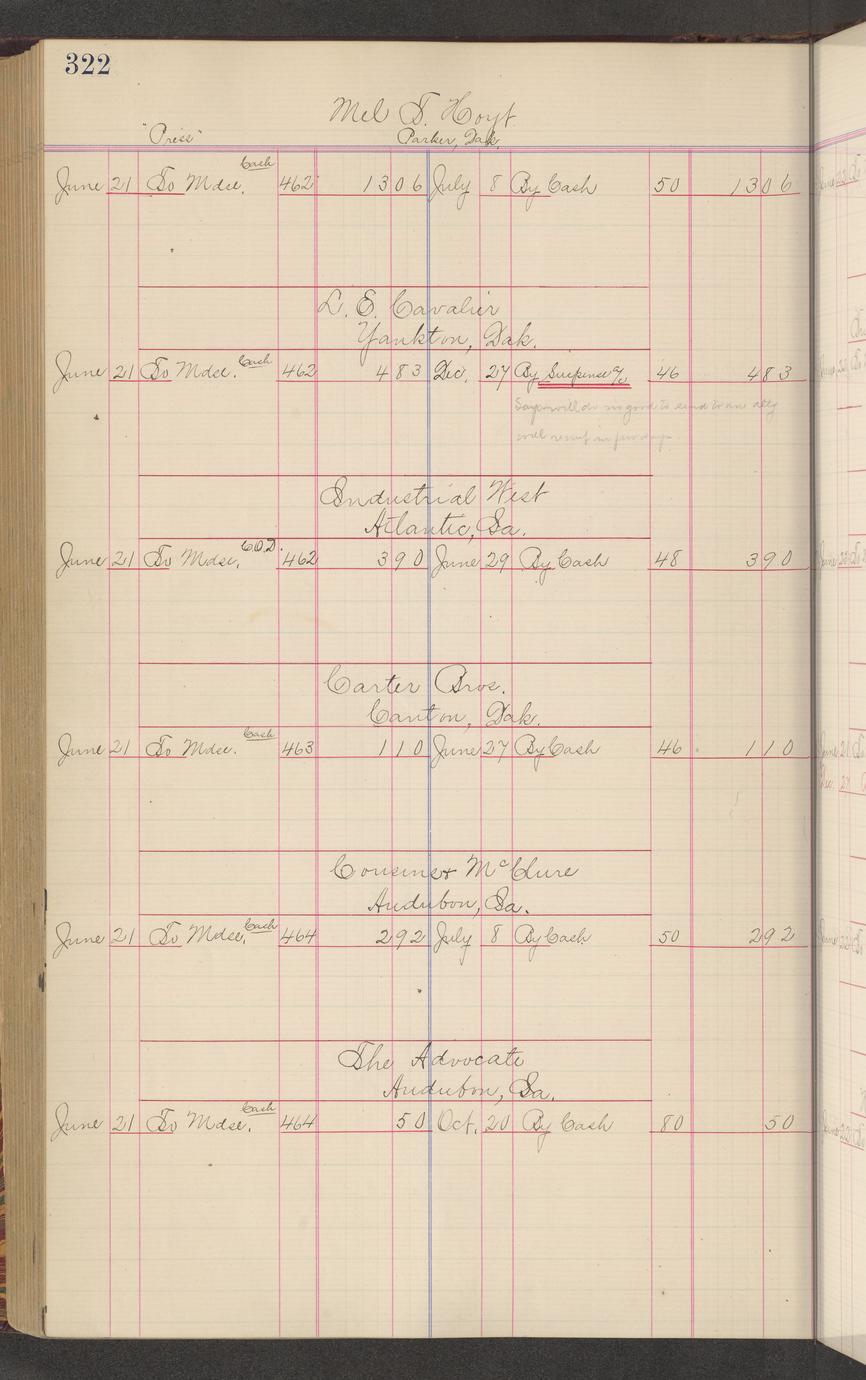 322
Mel S. Hoyt
"Press" Parker, Dak.
June 21 To Mdse. Cash 462 1306 July 8 By Cash 50 1306
L. E. Cavalier
Yankton, Dak.
June 21 To Mdse. Cash 462 483 Dec. 27 By Suspense a/c 46 483
Says will do no good to send to an atty
will remit in few days.
Industrial West
Atlantic, Ia.
June 21 To Mdse. C.O.D. 462 390 June 29 By Cash 48 390
Carter Bros.
Canton, Dak.
June 21 To Mdse. Cash 463 110 June 27 By Cash 46 110
Cousins & McClure
Audubon, Ia.
June 21 To Mdse. Cash 464 292 July 8 By Cash 50 292
The Advocate
Audubon, Ia.
June 21 To Mdse. Cash 464 50 Oct. 20 By Cash 80 50